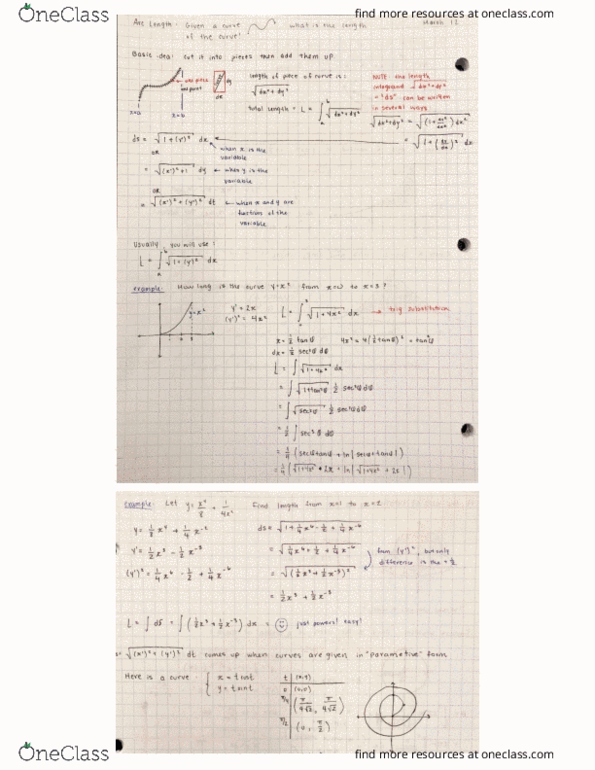 OneClass
find more resources at oneclass.com
Arc Length: Given a curve what is the length of the curve?
March 12
Basic idea: cut it into pieces then add them up
one piece
dy
dx
x=a
x=b
length of piece of curve is:
√(dx²+dy²)
total length = L = ∫ₐᵇ √(dx²+dy²)
NOTE: the length
integrand √(dx²+dy²)
= "ds" can be written
in several ways
ds = √(1+(y')²) dx
when x is the
variable
OR
= √((x')²+1) dy ← when y is the
variable
OR
= √((x')²+(y')²) dt ← when x and y are
function of the
variable
Usually, you will use:
L = ∫ₐᵇ √(1+(y')²) dx
example: How long is the curve y=x² from x=0 to x=3?
y=x²
y' = 2x
(y')² = 4x²
√(1+4x²) dx → trig substitution
x = ½ tanθ
4x² = 4(½tanθ)² = tan²θ
dx = ½ sec²θ dθ
L = ∫ √(1+4x²) dx
= ∫ √(1+tan²θ) ½ sec²θ dθ
= ∫ √(sec²θ) ½ sec²θ dθ
= ½ ∫ sec³θ dθ
= ¼ (secθtanθ + ln|secθ+tanθ|)
= ¼ (√(1+4x²) · 2x + ln|√(1+4x²) + 2x|)
example: Let y = x⁴/8 + 1/4x² Find length from x=1 to x=2
y = ⅛ x⁴ + ¼ x⁻²
y' = ½ x³ − ½ x⁻³
(y')² = ¼ x⁶ − ½ + ¼ x⁻⁶
ds = √(1 + ¼ x⁶ − ½ + ¼ x⁻⁶)
= √(¼ x⁶ + ½ + ¼ x⁻⁶)
= √((½x³ + ½x⁻³)²)
= ½x³ + ½x⁻³
from (y')², but only
difference is the + ½
L = ∫ ds = ∫ (½x³ + ½x⁻³) dx = just powers! easy!
= √((x')²+(y')²) dt comes up when curves are given in "parametric" form
Here is a curve: { x = t cost
y = t sint
t (x,y)
0 (0,0)
π/4 (π/4√2, π/4√2)
π/2 (0, π/2)
OneClass
find more resources at oneclass.com